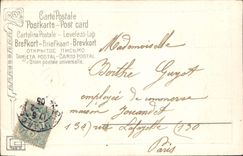 Carte Postale
Postkarte - Post card
Cartolina Postale - Levelező-Lap
Brefkort - Briefkaart - Brevkort
ОТКРЫТОЕ ПИСЬМО
TARJETA POSTAL - CARTÃO POSTAL
Union postale universelle.
Mademoiselle
Berthe Guyot
employée de commerce
maison Jouandet
130 rue Lafayette 130
Paris